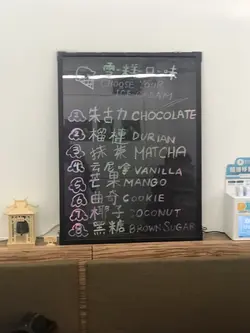 雪·糕·口·味
CHOOSE YOUR
ICE CREAM
1 朱古力 CHOCOLATE
2 榴槤 DURIAN
3 抹茶 MATCHA
4 云尼拿 VANILLA
5 芒果 MANGO
6 曲奇 COOKIE
7 椰子 COCONUT
8 黑糖 BROWN SUGAR